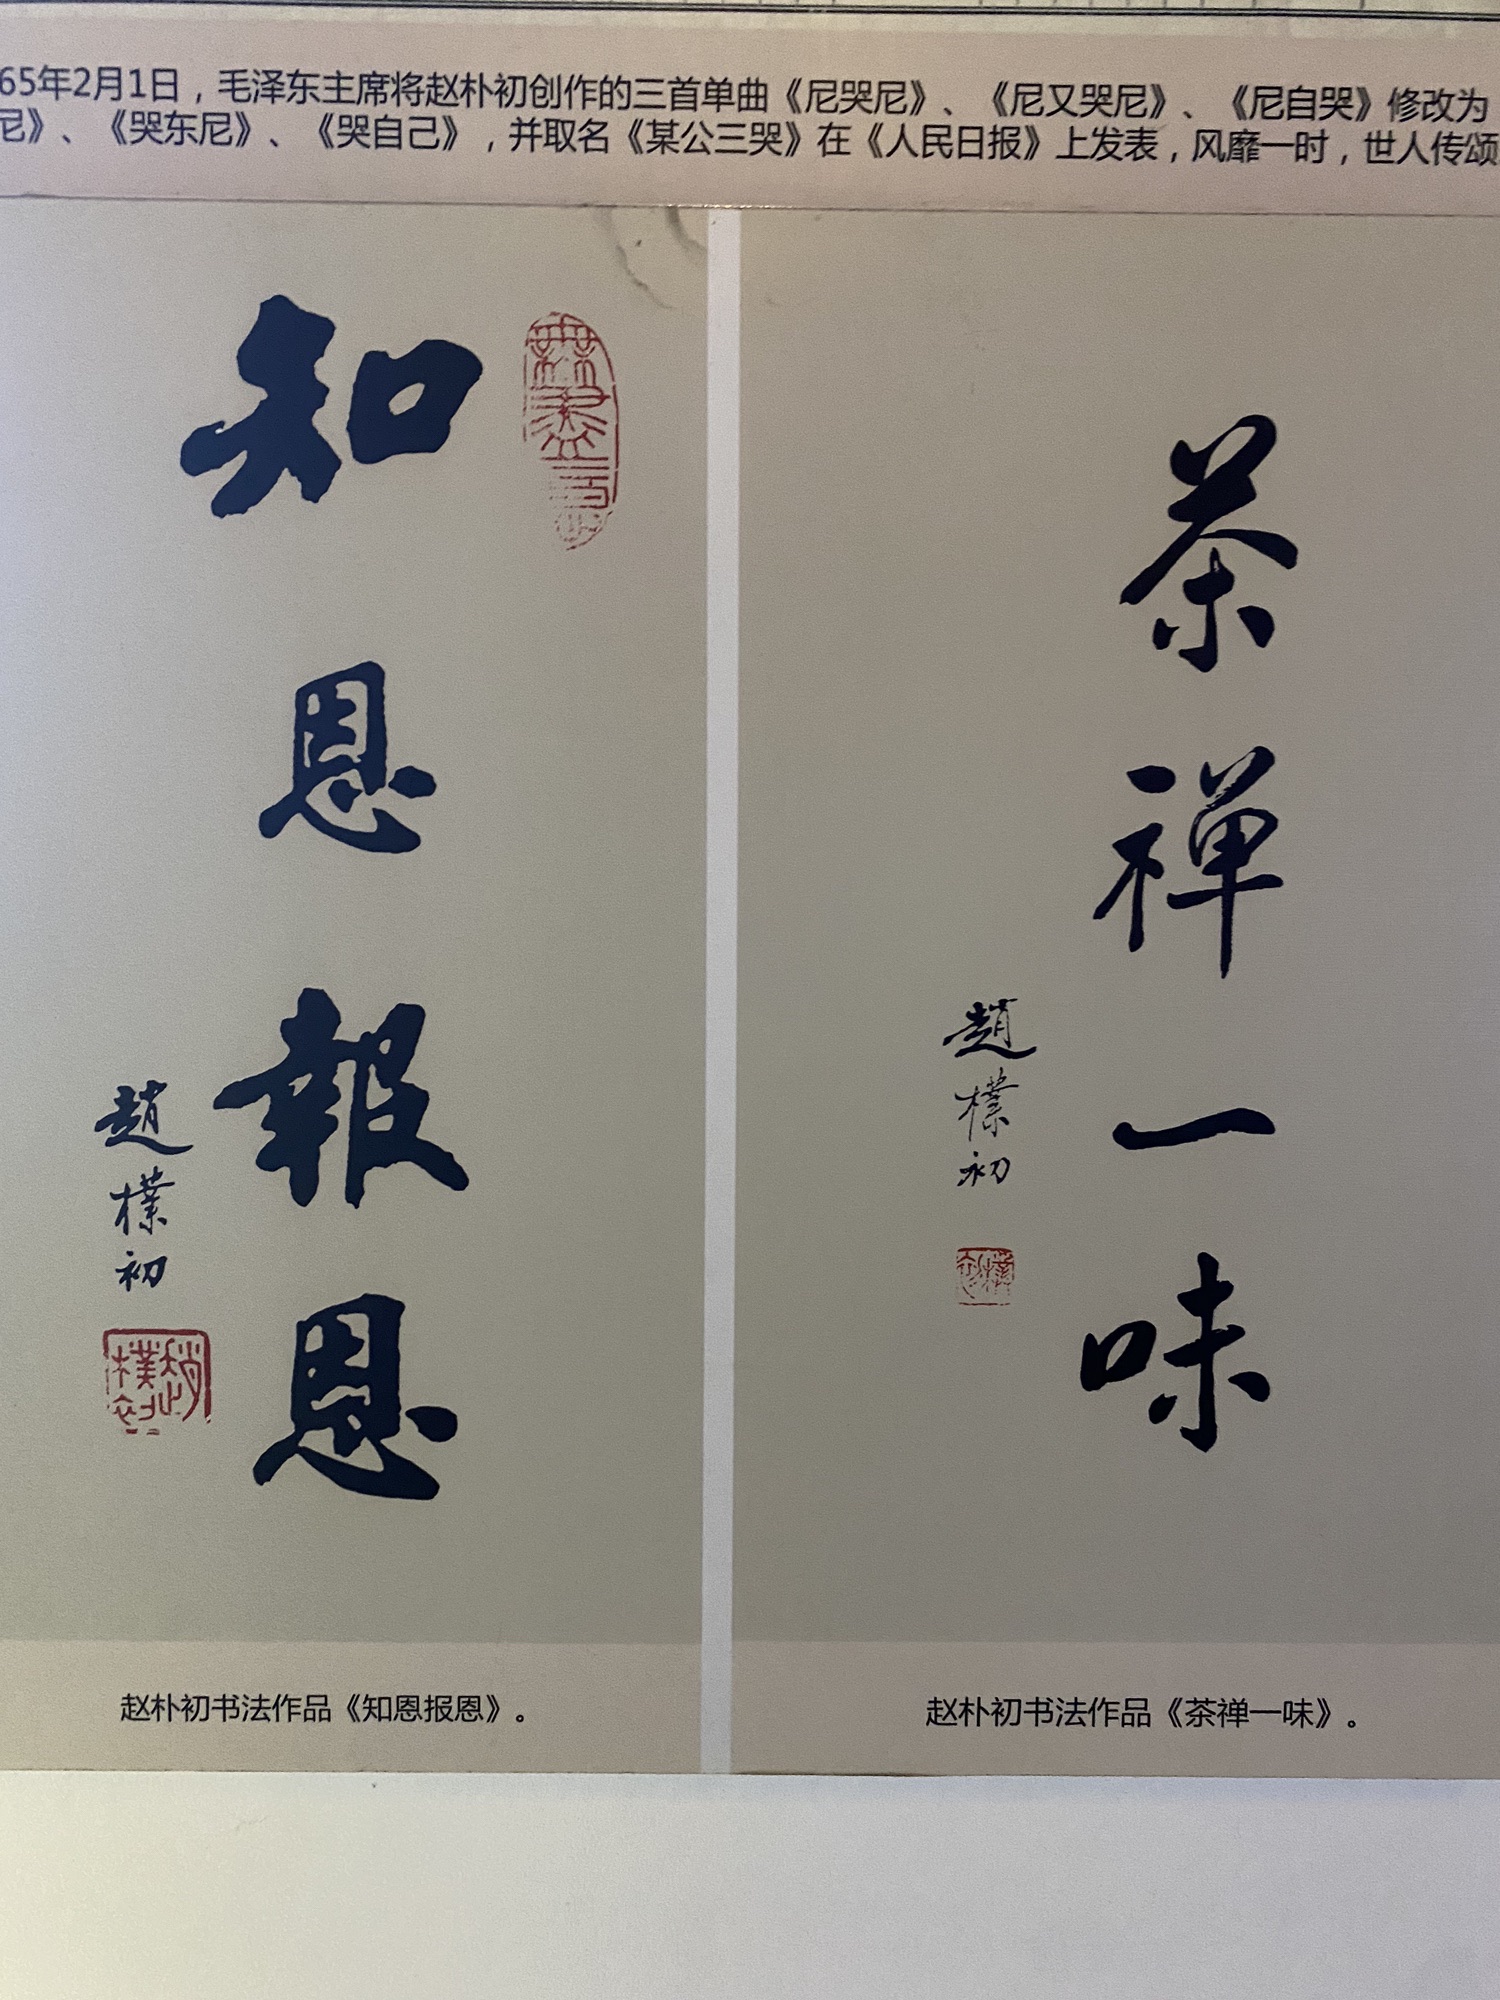 65年2月1日，毛泽东主席将赵朴初创作的三首单曲《尼哭尼》、《尼又哭尼》、《尼自哭》修改为
尼》、《哭东尼》、《哭自己》，并取名《某公三哭》在《人民日报》上发表，风靡一时，世人传颂
知恩報恩
趙樸初
趙樸初
茶禅一味
趙樸初
樸初
赵朴初书法作品《知恩报恩》。
赵朴初书法作品《茶禅一味》。